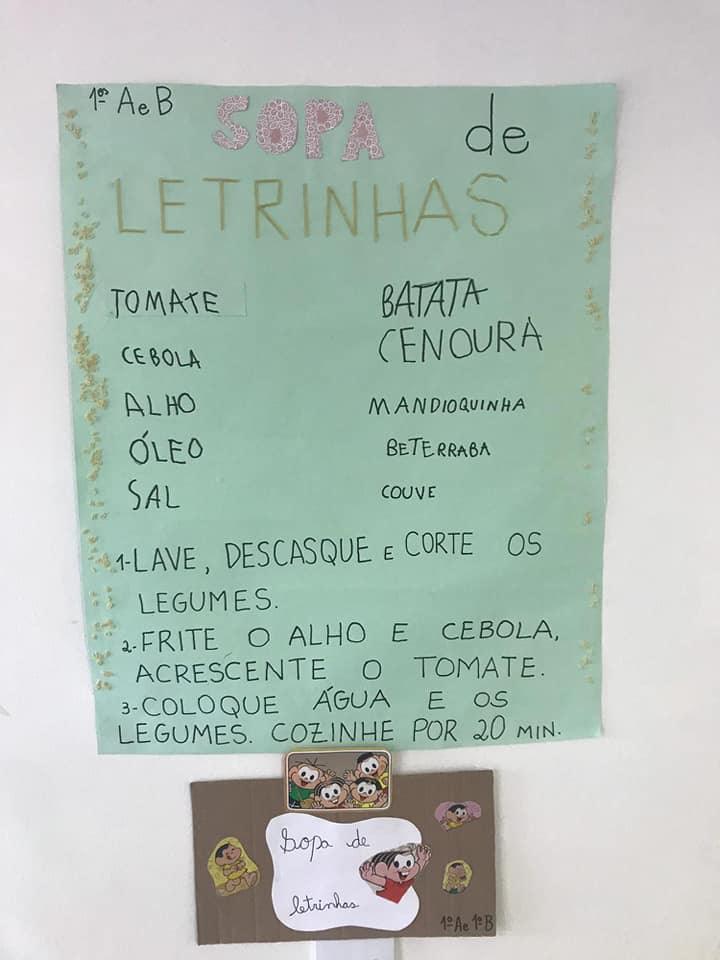 1ºs A e B
SOPA de
LETRINHAS
TOMATE
CEBOLA
ALHO
ÓLEO
SAL
BATATA
CENOURA
MANDIOQUINHA
BETERRABA
COUVE
1-LAVE, DESCASQUE E CORTE OS
LEGUMES.
2-FRITE O ALHO E CEBOLA,
ACRESCENTE O TOMATE.
3-COLOQUE ÁGUA E OS
LEGUMES. COZINHE POR 20 MIN.
Sopa de
letrinhas
1º A e 1º B